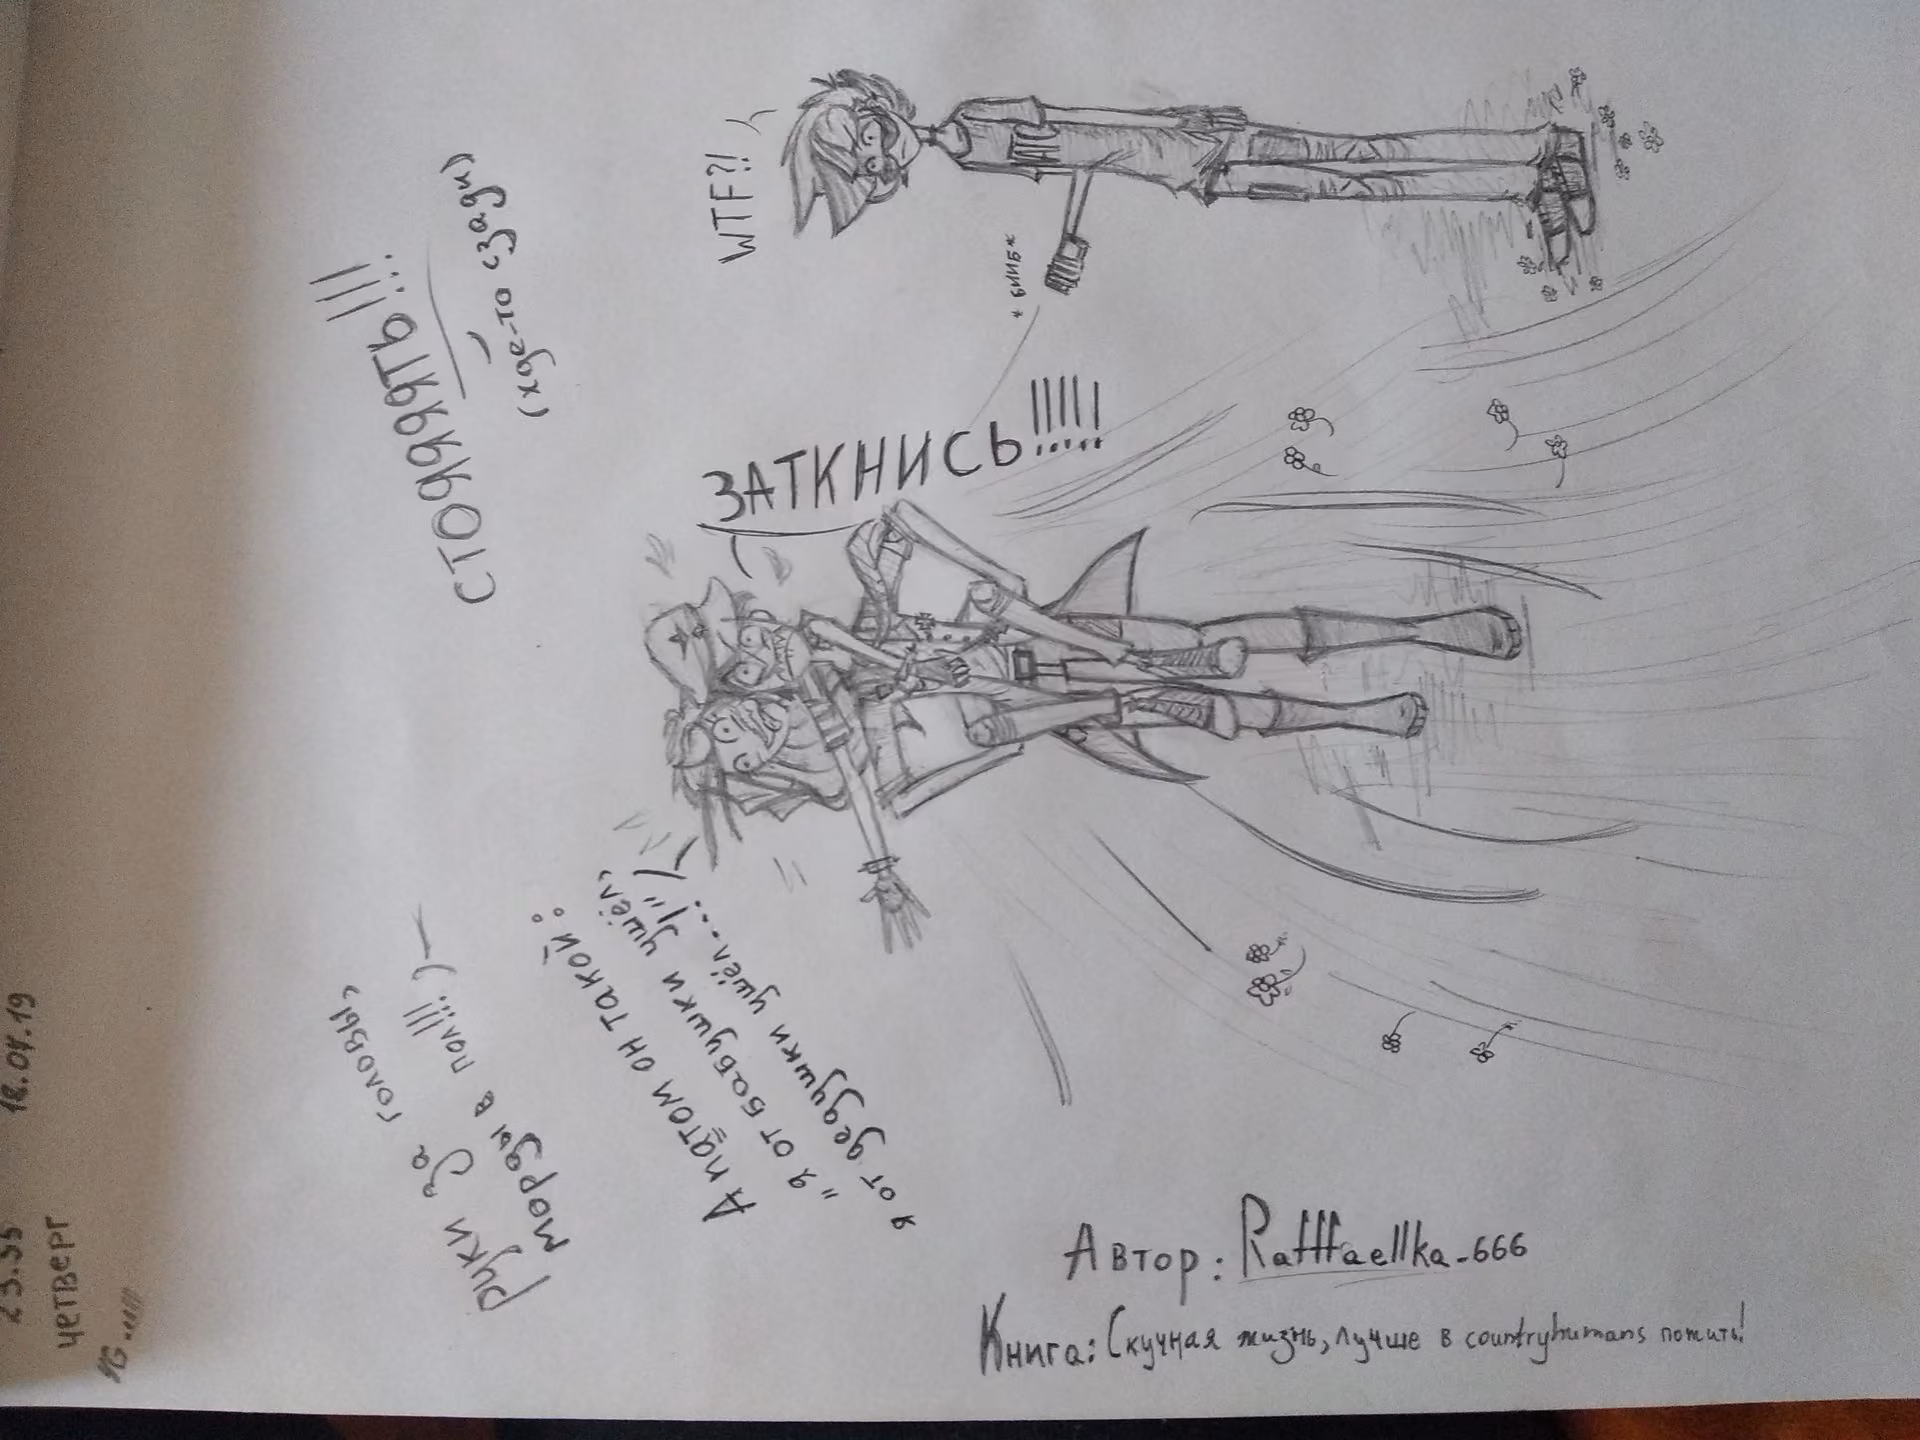 23.55 18.04.19
четверг
СТОЯЯЯЯТЬ!!!
(хде-то сзади)
РУКИ За головы,
морды в пол!!!)
WTF?!
ЗАТКНИСЬ!!!!!
* БИИБ*
А патом он такой:
"я от бабушки ушёл,
я от дедушки ушёл...!"
Автор: Rafffaellka-666
Книга: Скучная жизнь, лучше в countryhumans пожить!